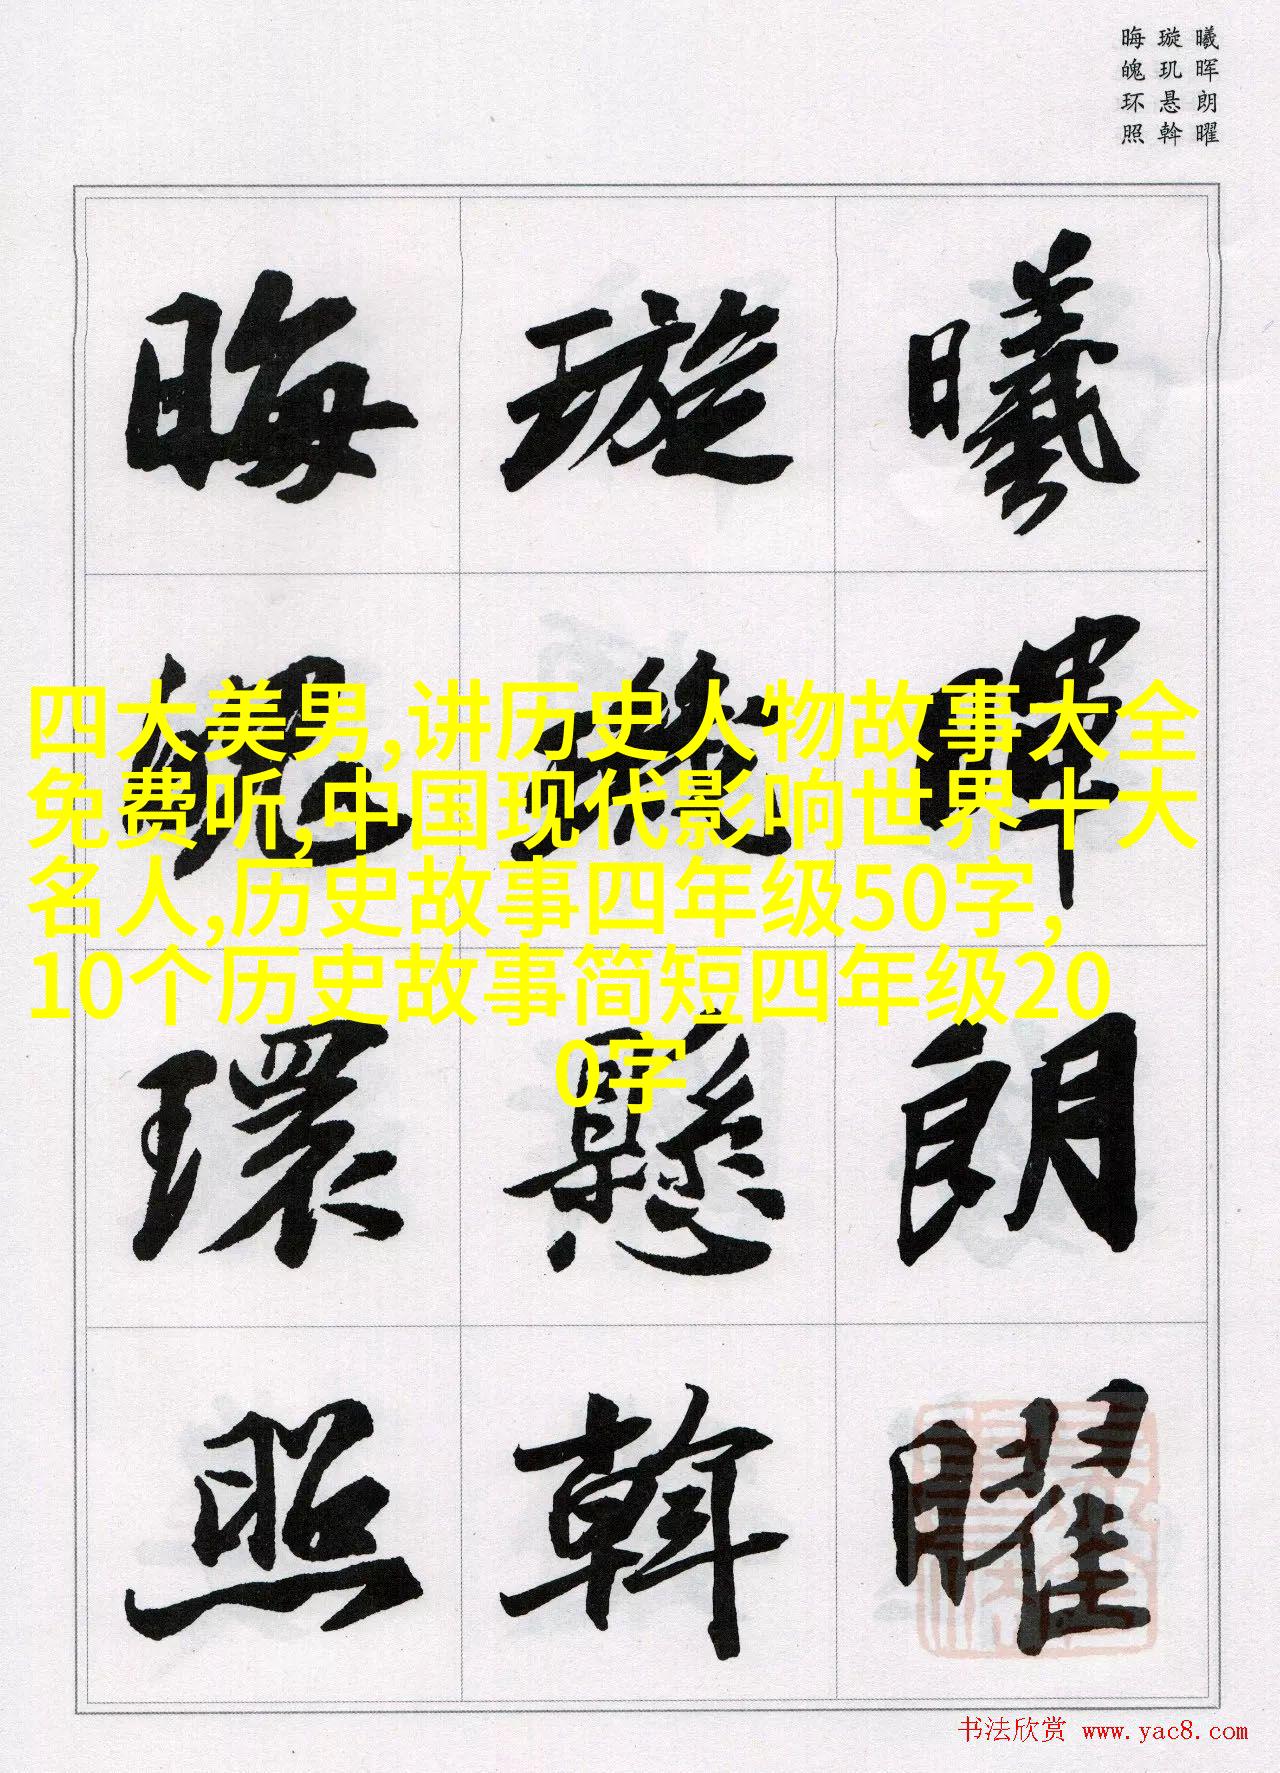 曦晖朗曜
璇玑悬斡
晦魄环照
曦暉朗曜
璇璣懸斡
晦魄環照
四大美男,讲历史人物故事大全
免费听,中国现代影响世界十大
名人,历史故事四年级50字,
10个历史故事简短四年级20
0字
书法欣赏 www.yac8.com